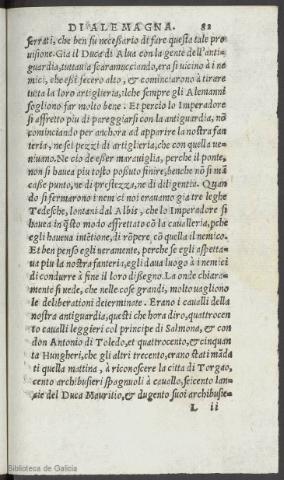 DI ALEMAGNA. 82
serrati, che ben fu necessario di fare questa tale pro
uisione. Gia il Duca di Alua con la gente dell'anti-
guardia, tuttauia scaramucciando, era si uicino à i ne
mici, che essi fecero alto, & cominciarono à tirare
tutta la loro artiglieria, ilche sempre gli Alemanni
sogliono far molto bene. Et perciò lo Imperadore
si affrettò piu di pareggiarsi con la antiguardia, nō
cominciando per anchora ad apparire la nostra fan
teria, ne sei pezzi di artiglieria, che con quella ue-
niuano. Ne ciò de esser marauiglia, perche il ponte,
non si hauea piu tosto possuto finire, benche nō si mā
casse punto, ne di prestezza, ne di diligentia. Quan
do si fermarono i nemici noi erauamo gia tre leghe
Tedesche, lontani dal Albis, che lo Imperadore si
hauea in q̄sto modo affrettato cō la caualleria, ꝑche
egli haueua intētione, di rōpere, cō quella il nemico.
Et ben pensò egli ueramente, perche se egli aspetta-
ua piu la nostra fanteria, egli daua luogo à i nemici
di condurre à fine il loro disegno. La onde chiara-
mente si uede, che nelle cose grandi, molto uagliono
le deliberationi determinate. Erano i caualli della
nostra antiguardia, questi che hora dirò, quattrocen
to caualli leggieri col principe di Salmona, & con
don Antonio di Toledo, et quattrocento, & cinquan
ta Hungheri, che gli altri trecento, erano stati māda
ti quella mattina, à riconoscere la citta di Torgao,
cento archibusieri spagnuoli à cauallo, seicento lan-
zie del Duca Mauritio, & dugento suoi archibusie-
L ii
Biblioteca de Galicia